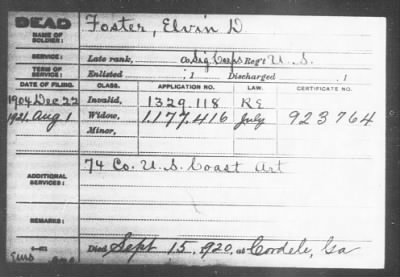 DEAD Foster, Elvin D
NAME OF SOLDIER:
SERVICE: Late rank, Co. Sig Corps Reg't U. S.
TERM OF SERVICE: Enlisted , 1 Discharged , 1
DATE OF FILING. CLASS. APPLICATION NO. LAW. CERTIFICATE NO.
1904 Dec 22 Invalid, 1329.118 R E
1921 Aug 1 Widow, 1177.416 July 923764
Minor,
ADDITIONAL SERVICES: 74 Co. U. S. Coast Art
REMARKS:
Died Sept 15, 1920, at Cordele, Ga